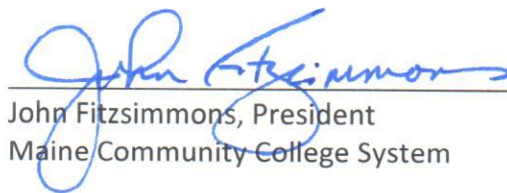 John Fitzsimmons
John Fitzsimmons, President
Maine Community College System